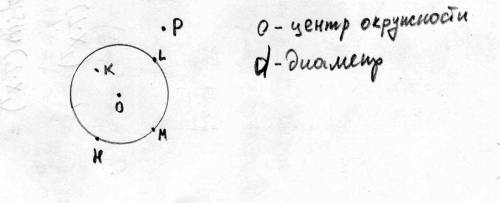 P
L
K
O
M
H
O - центр окружности
d - диаметр